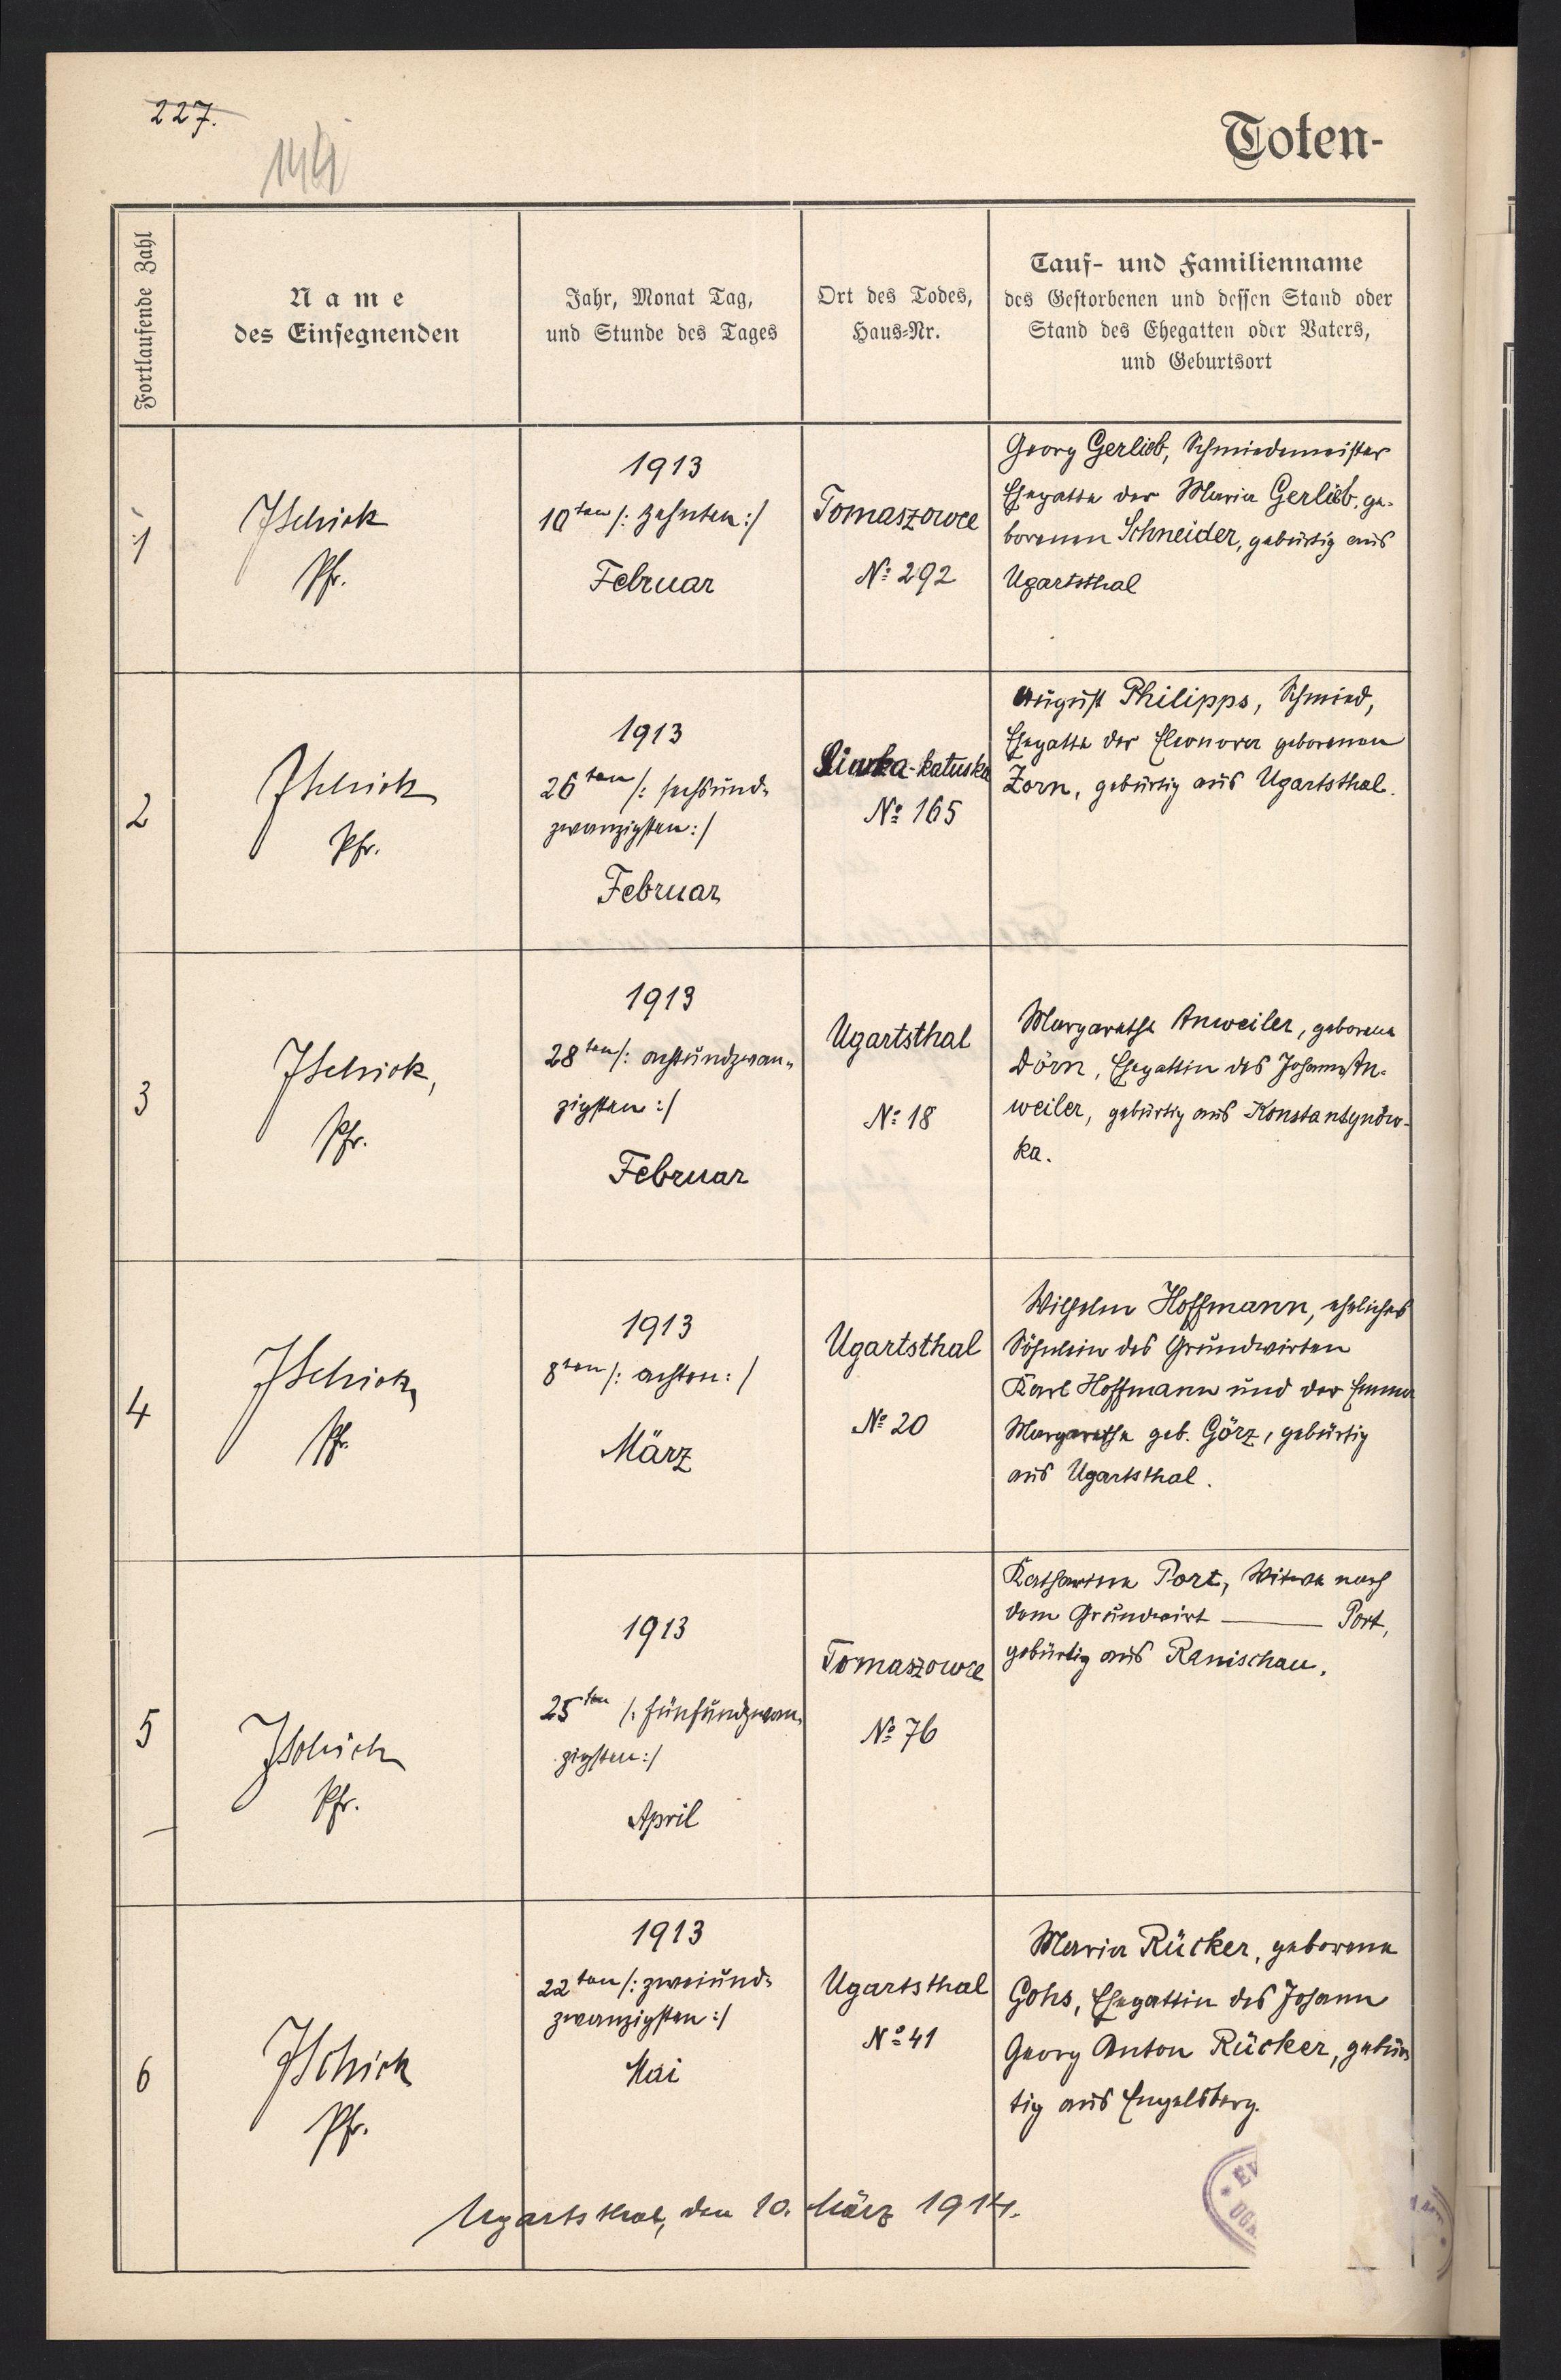 227.
144
Toten-
Fortlaufende Zahl
Name
des Einsegnenden
Jahr, Monat Tag,
und Stunde des Tages
Ort des Todes,
Haus-Nr.
Tauf- und Familienname
des Gestorbenen und dessen Stand oder
Stand des Ehegatten oder Vaters,
und Geburtsort
1
JSchick
Pfr.
1913
10ten /: zehnten :/
Februar
Tomaszowce
No 292
Georg Gerlieb, Schmiedemeister
Ehegatte der Maria Gerlieb, ge-
borenen Schneider, gebürtig aus
Ugartsthal
2
JSchick
Pfr.
1913
26ten /: sechsund-
zwanzigsten :/
Februar
Siwka-kałuska
No 165
August Philipps, Schmied,
Ehegatte der Eleonora geborenen
Zorn, gebürtig aus Ugartsthal.
3
JSchick,
Pfr.
1913
28ten /: achtundzwan-
zigsten :/
Februar
Ugartsthal
No 18
Margarethe Anweiler, geborene
Dörn, Ehegattin des Johann An-
weiler, gebürtig aus Konstantynów-
ka.
4
JSchick
Pfr.
1913
8ten /: achten :/
März
Ugartsthal
No 20
Wilhelm Hoffmann, eheliches
Söhnlein des Grundwirten
Karl Hoffmann und der Emma
Margarethe geb. Görz, gebürtig
aus Ugartsthal.
5
JSchick
Pfr.
1913
25ten /: fünfundzwan-
zigsten :/
April
Tomaszowce
No 76
Katharina Port, Witwe nach
dem Grundwirt ——— Port,
gebürtig aus Ranischau.
6
JSchick
Pfr.
1913
22ten /: zweiund-
zwanzigsten :/
Mai
Ugartsthal
No 41
Maria Rücker, geborene
Gohs, Ehegattin des Johann
Georg Anton Rücker, gebür-
tig aus Engelsberg.
Ugartsthal, den 10. März 1914.